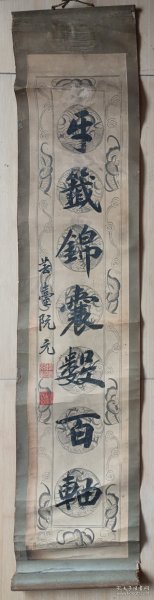 牙籤錦囊數百軸
芸臺阮元